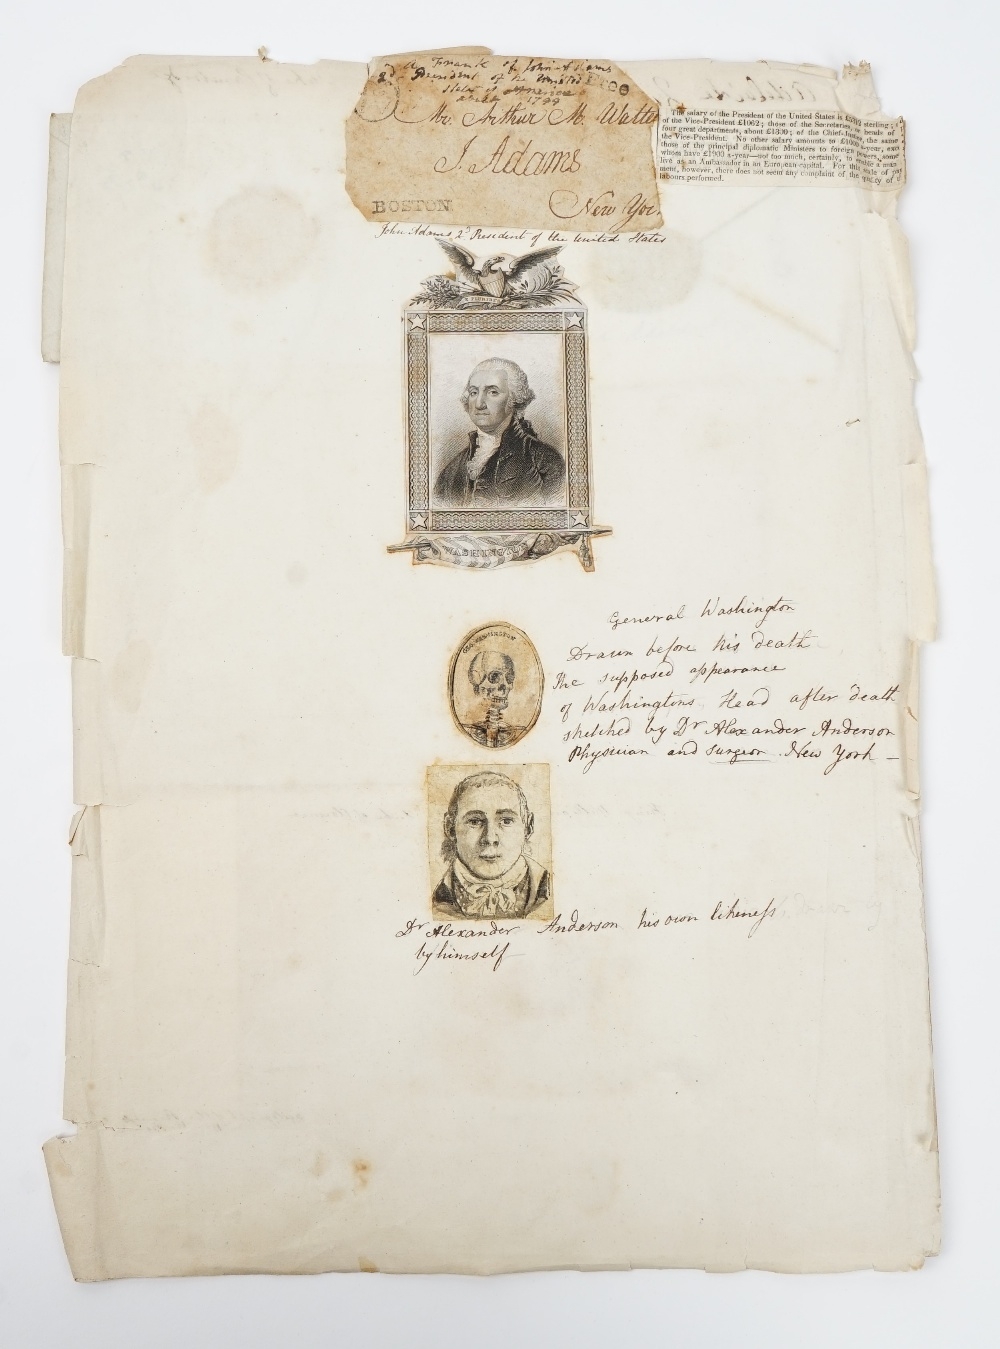 A Frank of John Adams
2d President of the United
States of America
1799
FREE
Mr. Arthur M. Walter
J. Adams
BOSTON
New Yor
The salary of the President of the United States is sterling;
of the Vice-President £1062; those of the Secretaries, or heads of
four great departments, about £1300; of the Chief-Justice, the same
the Vice-President. No other salary amounts to £1000 a-year, exc
those of the principal diplomatic Ministers to foreign powers, some
whom have £1900 a-year—not too much, certainly, to enable a man
live as an Ambassador in an European capital. For this rate of pay
ment, however, there does not seem any complaint of the of
labours performed.
John Adams 2d President of the United States
E PLURIBUS
WASHINGTON
GEO. WASHINGTON
General Washington
Drawn before his death
The supposed appearance
of Washingtons Head after death
sketched by Dr Alexander Anderson
Physician and surgeon New York —
Dr Alexander Anderson his own likeness
by himself